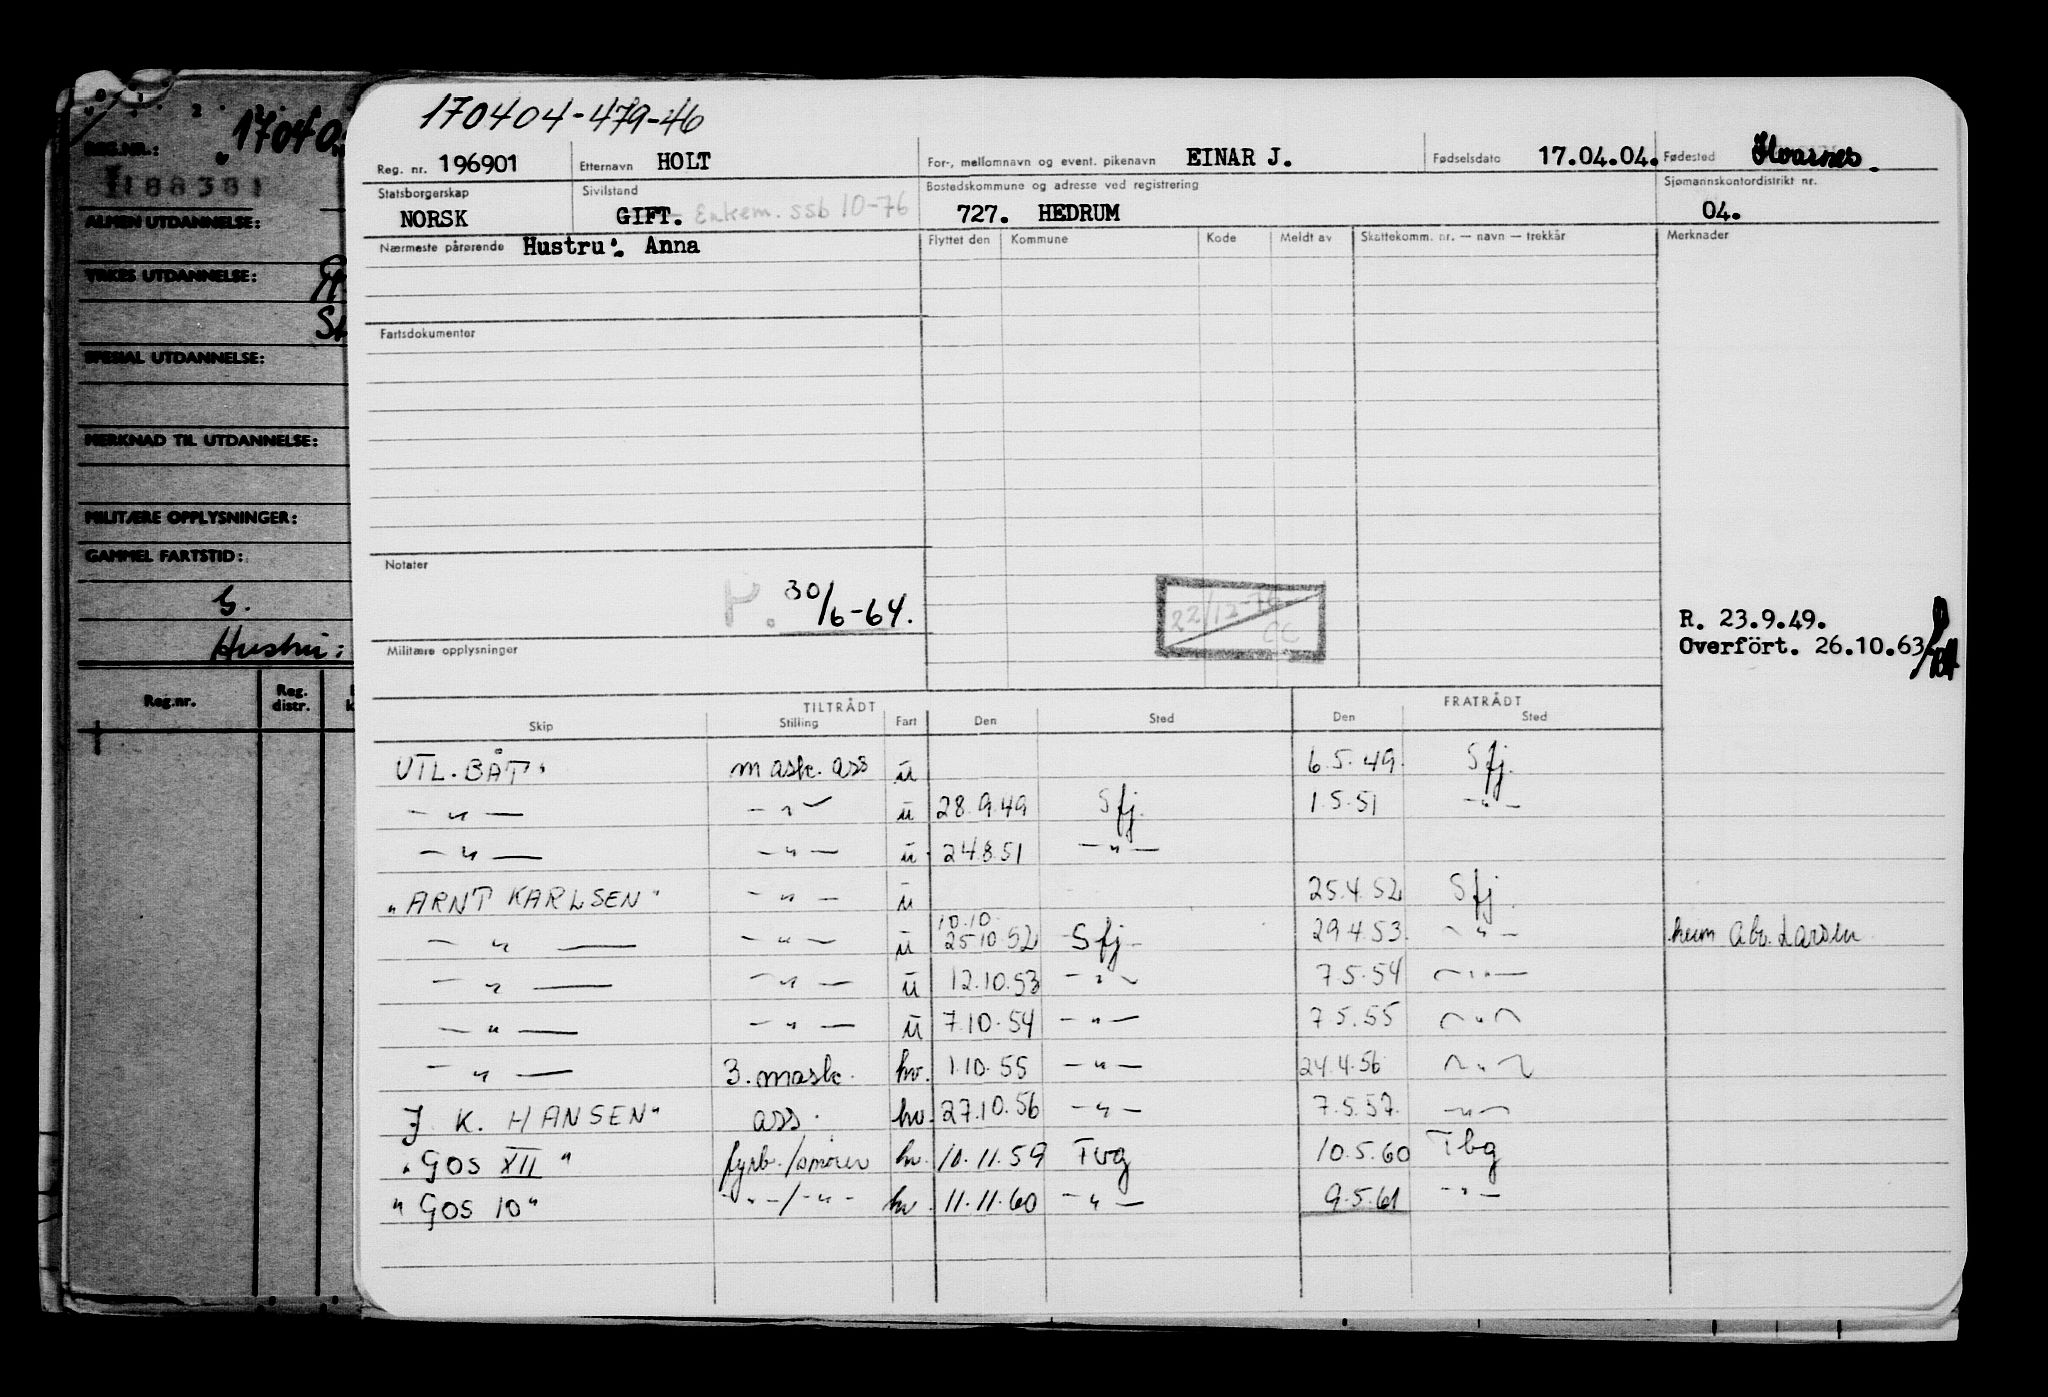 170404-479-46
Reg. nr. 196901 Etternavn HOLT For-, mellomnavn og event. pikenavn EINAR J. Fødselsdato 17.04.04. Fødested Kvarnes.
Statsborgerskap NORSK Sivilstand GIFT. Enkem. ssb 10-76 Bostedskommune og adresse ved registrering 727. HEDRUM Sjømannskontordistrikt nr. 04.
Nærmeste pårørende Hustru: Anna Flyttet den Kommune Kode Meldt av Skattekomm. nr. — navn — trekkår Merknader
Fartsdokumenter
Notater P. 30/6-64.
22/12-76 CC
R. 23.9.49.
Overfört. 26.10.63
Militære opplysninger
TILTRÅDT FRATRÅDT
Skip Stilling Fart Den Sted Den Sted
UTL. BÅT" mask. ass u 6.5.49. Sfj.
— " — — " — u 28.9.49 Sfj. 1.5.51 — " —
— " — — " — u. 24.8.51 — " —
"ARNT KARLSEN" — " — u 25.4.52 Sfj.
10.10.
— " — — " — u 25.10.52 Sfj 29.4.53. — " — hjem Larsen
— " — — " — u 12.10.53 — " — 7.5.54 — " —
— " — — " — u 7.10.54 — " — 7.5.55 — " —
— " — 3. mask. hv. 1.10.55 — " — 24.4.56 — " —
J. K. HANSEN" ass. hv. 27.10.56 — " — 7.5.57. — " —
"GOS XII" fyrb./smører hv. 10.11.59 Tbg 10.5.60 Tbg
"GOS 10" — " — / — " — hv. 11.11.60 — " — 9.5.61 — " —
REG.NR.: 17040
188381
ALMEN UTDANNELSE:
YRKES UTDANNELSE:
SPESIAL UTDANNELSE:
MERKNAD TIL UTDANNELSE:
MILITÆRE OPPLYSNINGER:
GAMMEL FARTSTID:
G.
Hustru:
Reg.nr. Reg. distr.